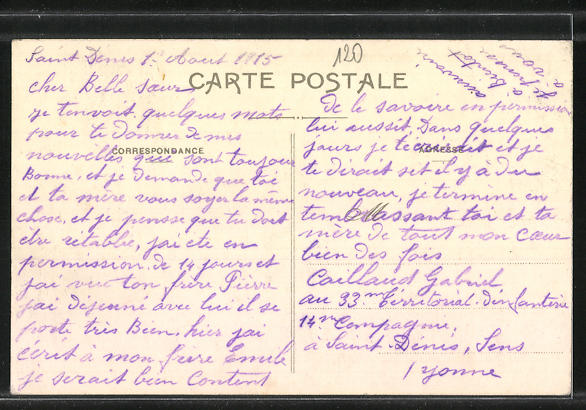 Saint Denis 1r Aout 1915
120
CARTE POSTALE
cher Belle sœur
je tenvoit quelques mots
pour te donner de mes
CORRESPONDANCE
nouvelles que sont toujour
Bonne, et je demande que toi
et ta mère vous soyer la même
chose, et je pensse que tu doit
etre rétablie, jai ete en
permission de 14 jours et
jai vu ton frère Pierre
jai déjeuné avec lui il se
porte très Bien, hier jai
écrit à mon frère Emile
je serait bien content
ADRESSE
de le savoire en permission
lui aussit, Dans quelques
jours je técrirait et je
te dirait set il y à du
nouveau, je termine en
tembrassant toi et ta
mère de tout mon cœur
bien des fois
Caillaud Gabriel
au 33me Térritorial d'infanterie
14me Compagnie,
à Saint-Dénis, Sens
Yonne
a bientot
a vous